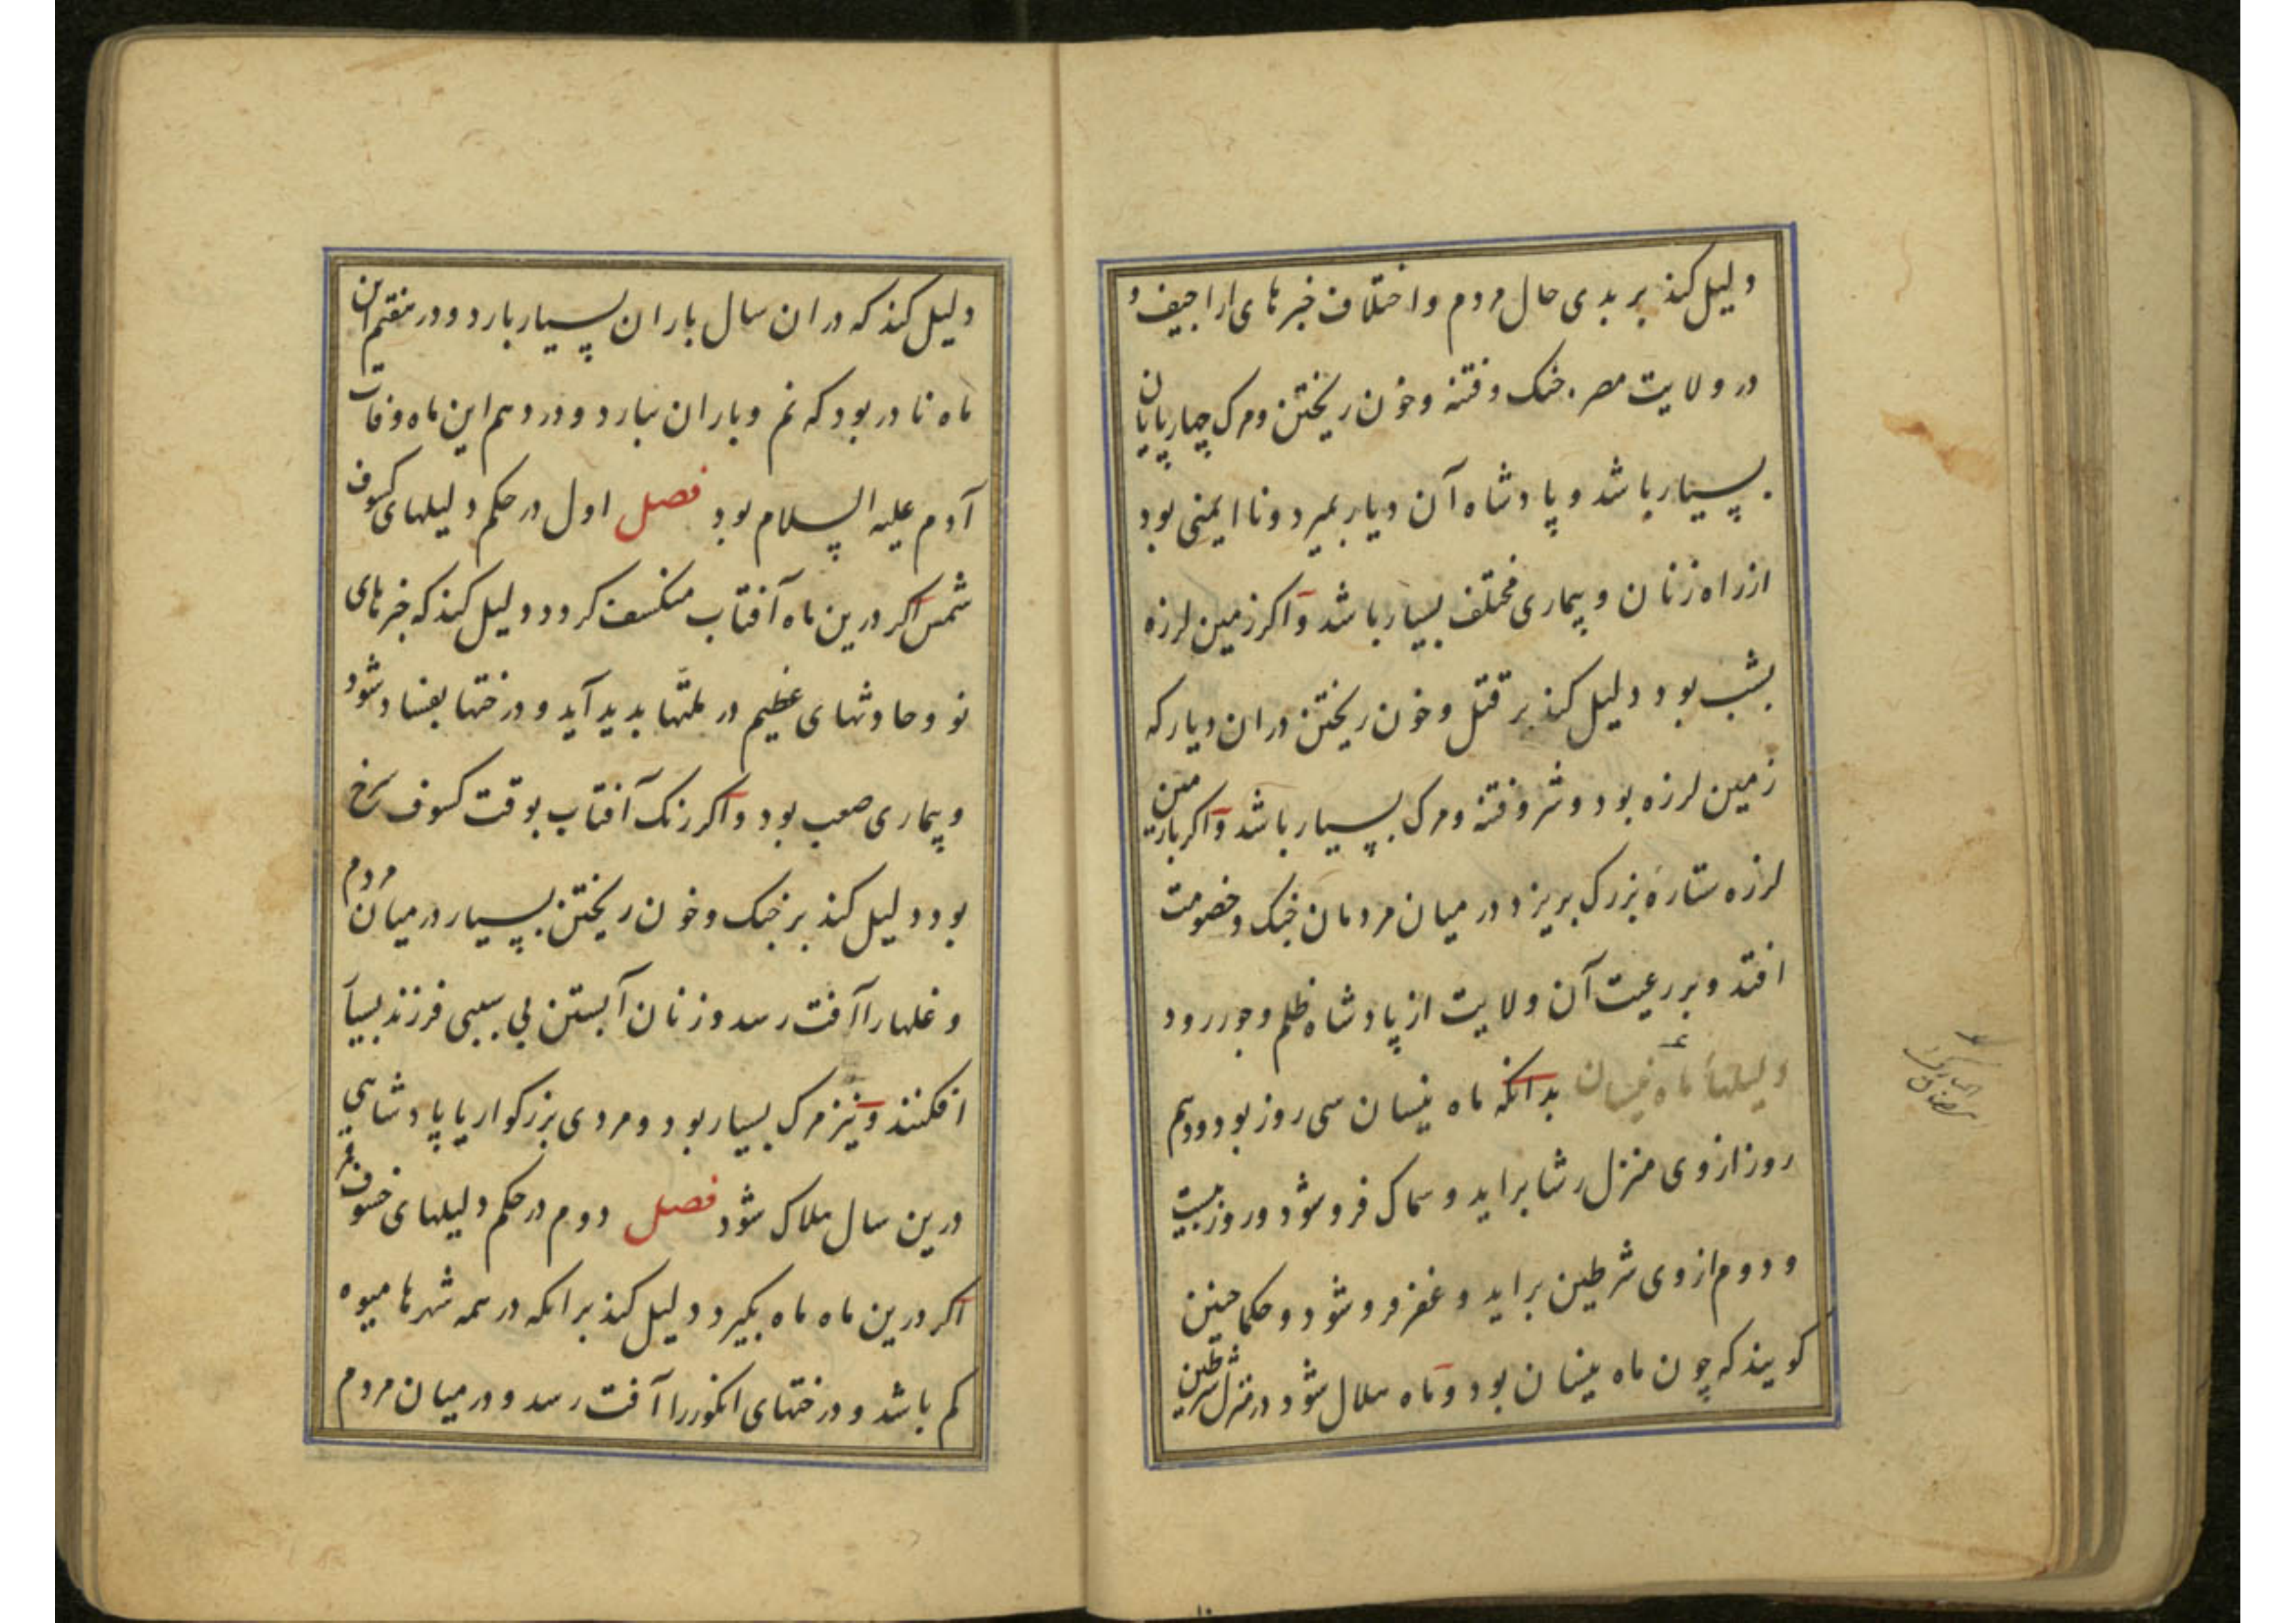 دلیل کند بر بدی حال مردم و اختلاف خبرهای اراجیف و
در ولایت مصر جنک و فتنه و خون ریختن و مرک چهارپایان
بسیار باشد و پادشاه آن دیار بمیرد و نا ایمنی بود
از راه زنان و بیماری مختلف بسیار باشد و اکر زمین لرزه
بشب بود دلیل کند بر قتل و خون ریختن دران دیار که
زمین لرزه بود و شر و فتنه و مرک بسیار باشد و اکر با زمین
لرزه ستاره بزرک بریزد در میان مردمان جنک و خصومت
افتد و بر رعیت آن ولایت از پادشاه ظلم و جور رود
دلیلهاء ماه نیسان بدانکه ماه نیسان سی روز بود و دهم
روز از وی منزل رشا براید و سماک فرو شود و روز بیست
و دوم از وی شرطین براید و غفر فرو شود و حکما چنین
کویند که چون ماه نیسان بود و ماه هلال شود در منزل شرطین
دلیل کند که دران سال باران بسیار بارد و در هفتم این
ماه نادر بود که نم و باران نبارد و در دهم این ماه وفات
آدم علیه السلام بود فصل اول در حکم دلیلهای کسوف
شمس اکر درین ماه آفتاب منکسف کردد دلیل کند که خبرهای
نو و حادثهای عظیم در ملتها بدید آید و درختها بفساد شود
و بیماری صعب بود و اکر رنک آفتاب بوقت کسوف سرخ
بود دلیل کند بر جنک و خون ریختن بسیار در میان مردم
و غلها را آفت رسد و زنان آبستن بی سببی فرزند بسیار
افکنند و نیز مرک بسیار بود و مردی بزرکوار یا پادشاهی
درین سال هلاک شود فصل دوم در حکم دلیلهای خسوف قمر
اکر درین ماه ماه بکیرد دلیل کند بر انکه در همه شهرها میوه
کم باشد و درختهای انکور را آفت رسد و در میان مردم